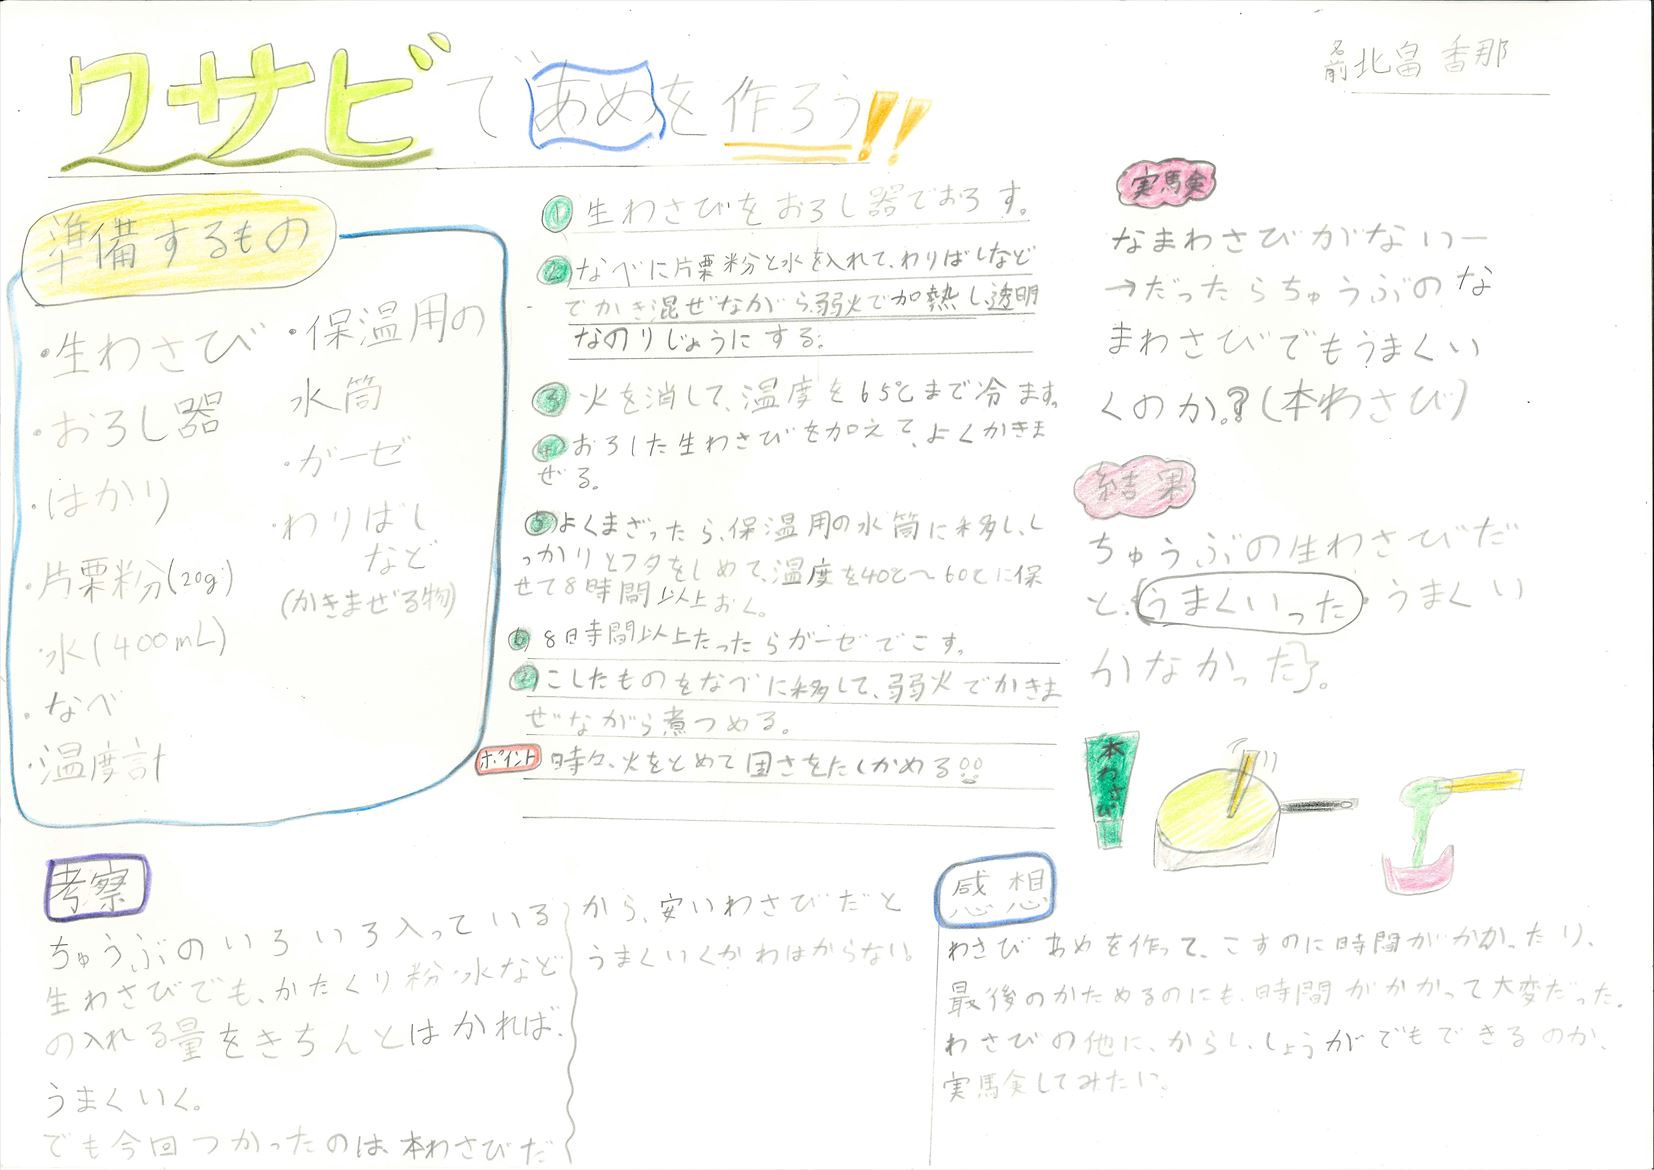 ワサビであめを作ろう!!
名前 北畠 香那
準備するもの
・生わさび
・おろし器
・はかり
・片栗粉(20g)
・水(400mL)
・なべ
・温度計
・保温用の
水筒
・ガーゼ
・わりばし
など
(かきまぜる物)
① 生わさびをおろし器でおろす。
② なべに片栗粉と水を入れて、わりばしなど
でかき混ぜながら弱火で加熱し透明
なのりじょうにする。
③ 火を消して、温度を65℃まで冷ます。
④ おろした生わさびを加えて、よくかきま
ぜる。
⑤ よくまざったら、保温用の水筒に移し、し
っかりとフタをしめて、温度を40℃〜60℃に保
せて8時間以上おく。
⑥ 8時間以上たったらガーゼでこす。
⑦ こしたものをなべに移して、弱火でかきま
ぜながら煮つめる。
ポイント 時々、火をとめて固さをたしかめる
実験
なまわさびがないー
→だったらちゅうぶのな
まわさびでもうまくい
くのか?(本わさび)
結果
ちゅうぶの生わさびだ
と、(うまくいった・うまくい
かなかった)。
本わさび
考察
ちゅうぶのいろいろ入っている
生わさびでも、かたくり粉・水など
の入れる量をきちんとはかれば、
うまくいく。
でも今回つかったのは、本わさびだ
から、安いわさびだと
うまくいくかわはからない。
感想
わさびあめを作って、こすのに時間がかかったり、
最後のかためるのにも、時間がかかって大変だった。
わさびの他に、からし、しょうがでもできるのか、
実験してみたい。